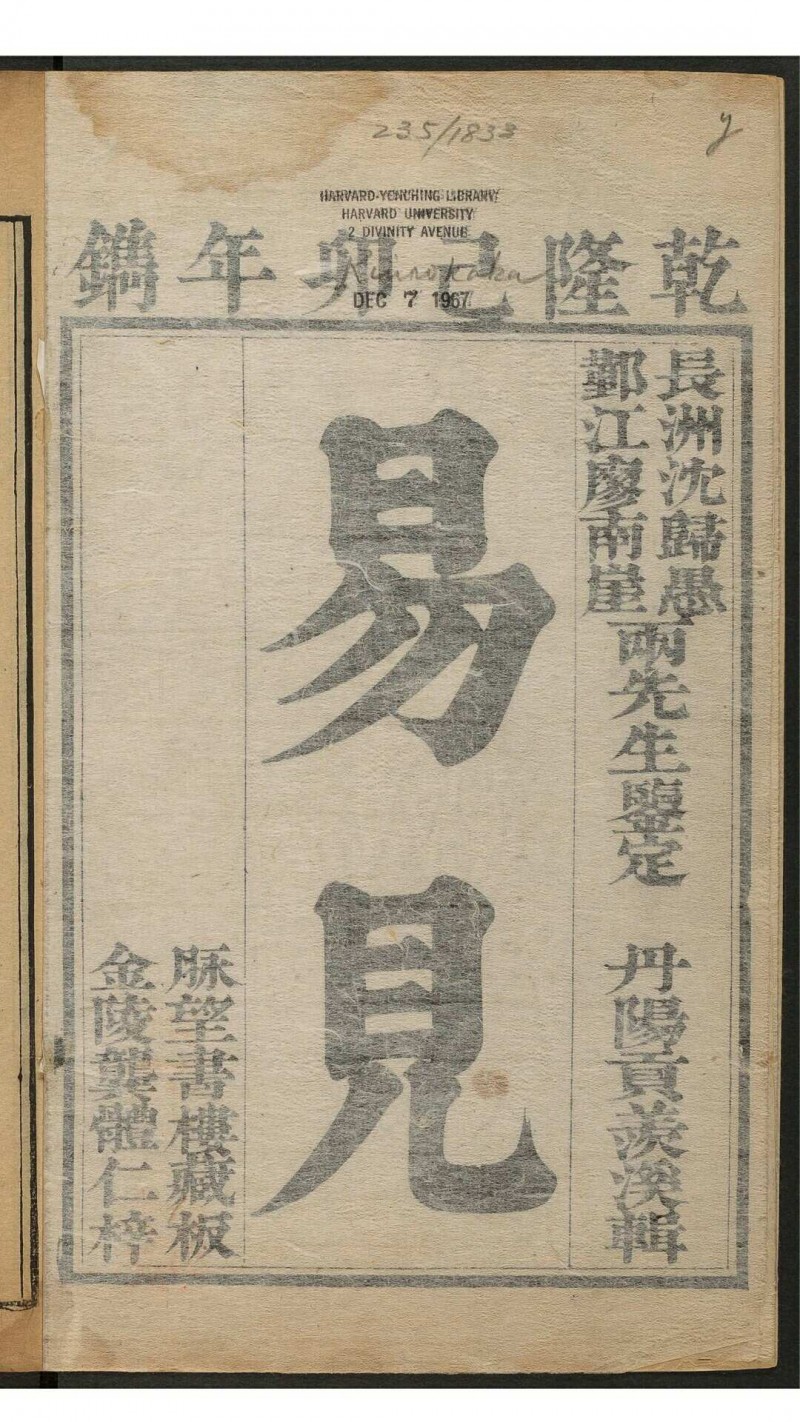 235/1833
y
HARVARD-YENCHING LIBRARY
HARVARD UNIVERSITY
2 DIVINITY AVENUE
DEC 7 1967
乾隆己卯年鐫
長洲沈歸愚
鄞江廖南崖
兩先生鑒定
丹陽貢羨溪輯
易見
脉望書樓藏板
金陵龔體仁梓